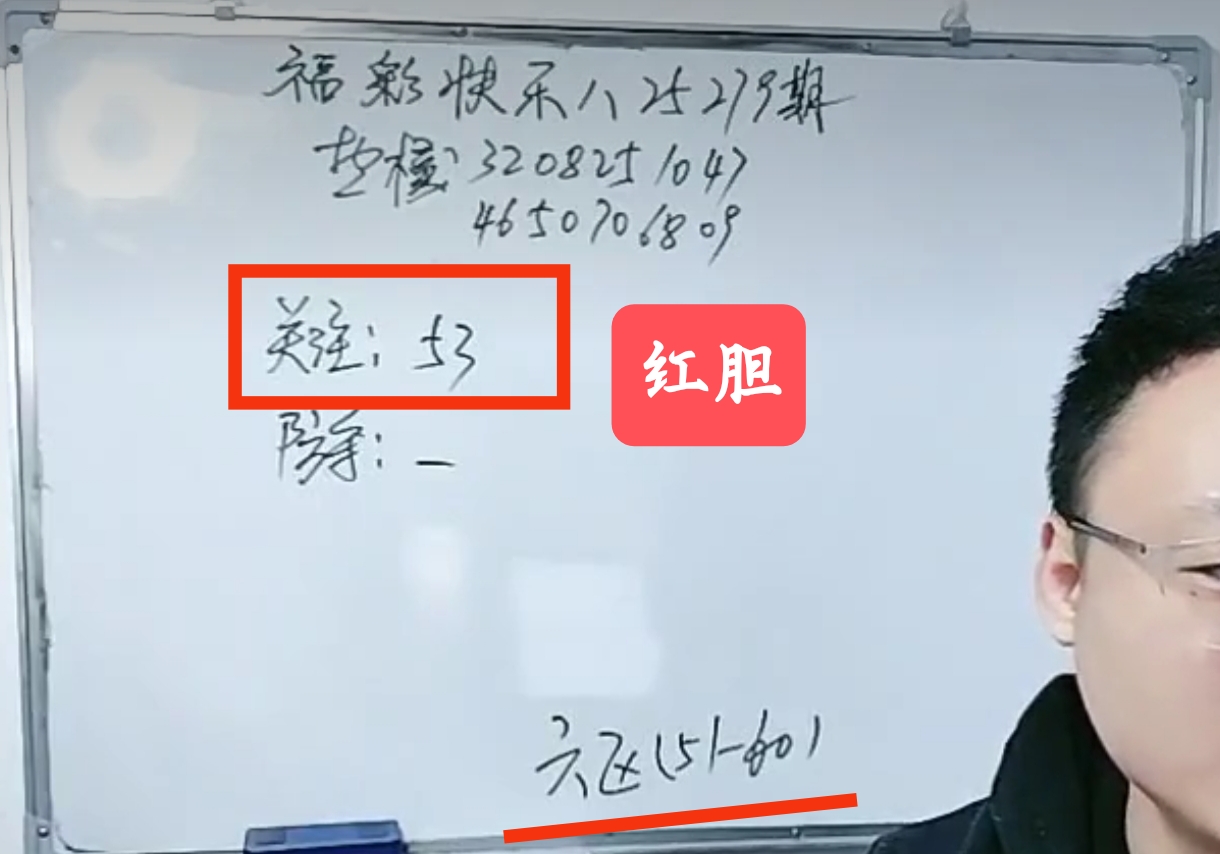 福彩快乐八25279期
垫模：3208251047
4650706809
关注：53
红胆
防守：—
六区(51-60)